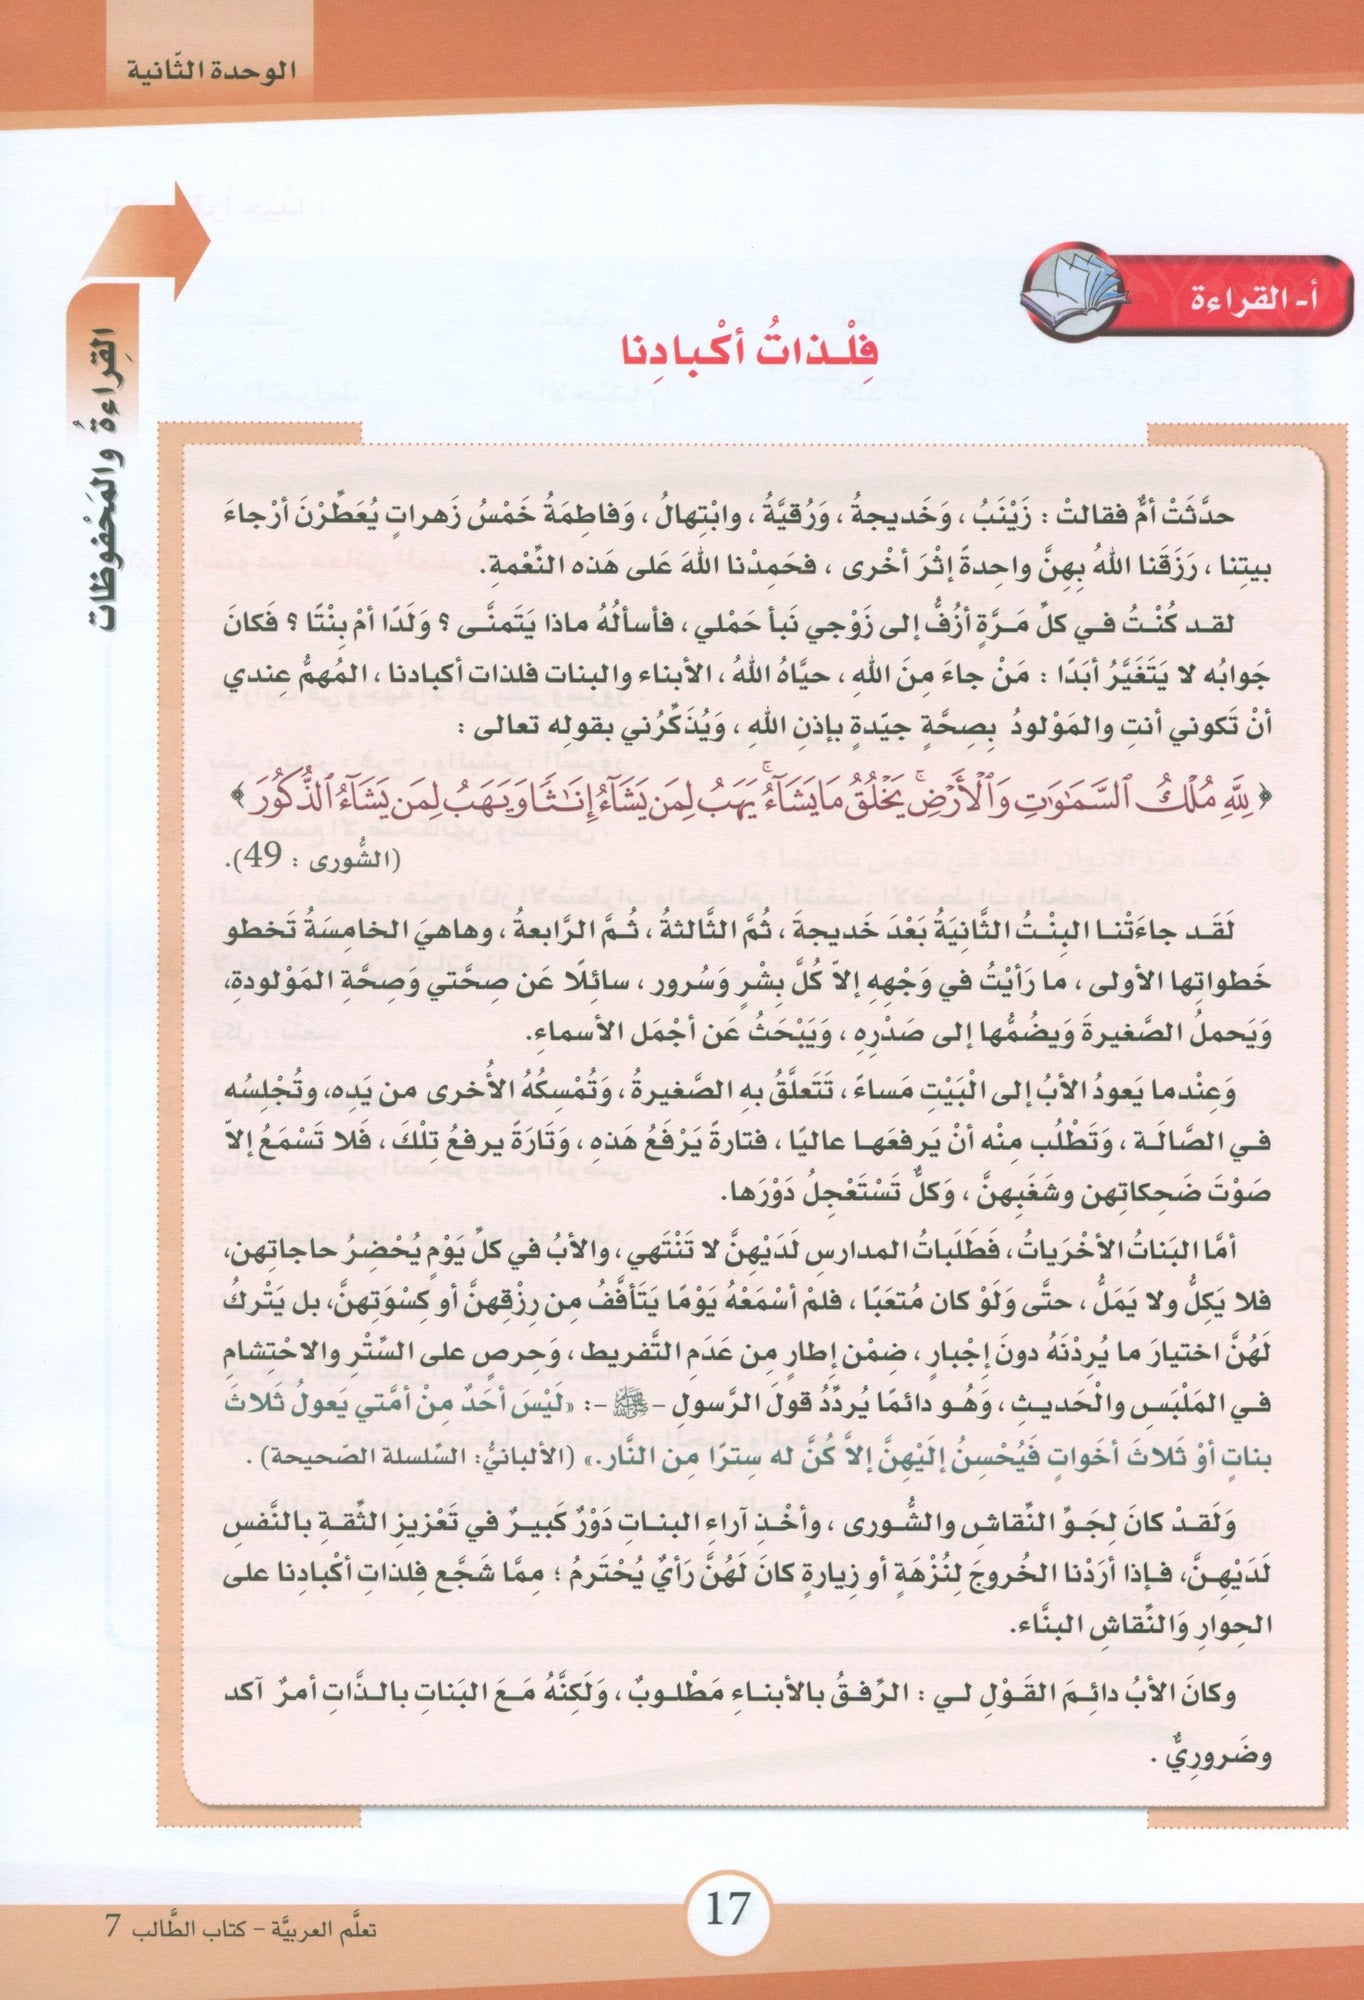 الوحدة الثّانية
القِراءةُ والمَحْفوظات
أ- القراءة
فِلْذاتُ أكْبادِنا
حدَّثَتْ أمٌّ فقالتْ : زَيْنَبُ ، وَخَديجةُ ، وَرُقيَّةُ ، وابْتِهالُ ، وَفاطِمَةُ خَمْسُ زَهراتٍ يُعَطِّرْنَ أرْجاءَ
بيتِنا ، رَزَقَنا اللهُ بِهِنَّ واحِدةً إثْرَ أخْرى ، فحَمِدْنا اللهَ عَلى هَذه النِّعْمةِ.
لقد كُنْتُ في كلِّ مَرَّةٍ أزُفُّ إلى زَوْجي نَبأ حَمْلي ، فأسألُهُ ماذا يَتَمنَّى ؟ وَلَدًا أمْ بِنْتًا ؟ فَكانَ
جَوابُه لا يَتَغَيَّرُ أبَدًا : مَنْ جاءَ مِنَ اللهِ ، حيَّاهُ اللهُ ، الأبناء والبنات فلذات أكبادنا ، المُهمُّ عِندي
أنْ تَكوني أنتِ والمَوْلودُ بِصِحَّةٍ جيّدةٍ بإذنِ اللهِ ، وَيُذَكِّرُني بقولِه تعالى :
﴿ لِلَّهِ مُلْكُ ٱلسَّمَٰوَٰتِ وَٱلْأَرْضِ ۚ يَخْلُقُ مَا يَشَآءُ ۚ يَهَبُ لِمَن يَشَآءُ إِنَٰثًا وَيَهَبُ لِمَن يَشَآءُ ٱلذُّكُورَ ﴾
(الشُّورى : 49).
لَقَد جاءَتْنا البِنْتُ الثَّانِيَةُ بَعْدَ خَديجةَ ، ثُمَّ الثَّالثةُ ، ثُمَّ الرَّابعةُ ، وهاهيَ الخامِسَةُ تَخطو
خَطواتِها الأولى ، ما رَأيْتُ في وَجْهِهِ إلاّ كُلَّ بِشْرٍ وَسُرور ، سائِلًا عَن صِحَّتي وَصِحَّةِ المَوْلودةِ،
وَيَحملُ الصَّغيرةَ وَيضُمُّها إلى صَدْرِهِ ، وَيَبْحَثُ عَن أجْمَل الأسماءِ.
وَعِنْدما يَعودُ الأبُ إلى الْبَيْتِ مَساءً ، تَتَعلَّقُ بهِ الصَّغيرةُ ، وَتُمْسِكُهُ الأُخرى من يَدِه، وتُجْلِسُه
في الصَّالَة ، وَتَطْلُب مِنْه أنْ يَرفعَها عاليًا ، فتارةً يَرْفَعُ هَذهِ ، وَتَارَةً يرفعُ تِلْكَ ، فَلا تَسْمَعُ إلاّ
صَوْتَ ضَحِكاتِهن وشَغَبِهنَّ ، وَكلٌّ تَسْتَعْجِلُ دَوْرَها.
أمَّا البَناتُ الأخْرَياتُ ، فَطَلَباتُ المدارس لَدَيْهِنَّ لا تَنْتَهي ، والأبُ في كلِّ يَوْمٍ يُحْضِرُ حاجاتِهن،
فلا يَكِلُّ ولا يَمَلُّ ، حتَّى وَلَوْ كان مُتعَبًا ، فلمْ أسْمَعْهُ يَوْمًا يَتَأفَّفُ مِن رِزْقِهنَّ أو كِسْوَتِهنَّ، بل يَتْركُ
لَهُنَّ اختيارَ ما يُرِدْنَهُ دونَ إجْبارٍ ، ضِمْن إطارٍ مِن عَدَمِ التَّفريط ، وَحرصٍ على السِّتْرِ والاحْتِشامِ
في المَلْبَسِ والْحَديثِ ، وَهُو دائمًا يُردِّدُ قولَ الرَّسولِ - ﷺ -: «لَيْسَ أحَدٌ مِنْ أمَّتي يَعولُ ثَلاثَ
بناتٍ أوْ ثَلاثَ أخَواتٍ فَيُحْسِنُ إلَيْهِنَّ إلاَّ كُنَّ له سِترًا مِن النَّار.» (الألبانيُّ: السِّلسلة الصّحيحة) .
وَلَقدْ كانَ لِجَوِّ النِّقاشِ والشُّورى ، وأخْذِ آراءِ البناتِ دَوْرٌ كبيرٌ في تَعْزيزِ الثِّقةِ بالنَّفسِ
لَدَيْهِنَّ، فـإذا أرَدْنا الخُروجَ لِنُزْهَةٍ أو زِيارةٍ كانَ لَهُنَّ رَأيٌ يُحْتَرمُ ؛ مِمَّا شَجَّع فِلذاتِ أكْبادِنا على
الحِوارِ وَالنِّقاشِ البنَّاء.
وكانَ الأبُ دائِمَ القَوْلِ لي : الرِّفقُ بالأبناءِ مَطْلوبٌ ، وَلَكِنَّهُ مَعَ البَناتِ بالذَّاتِ أمرٌ آكد
وضَروريٌّ .
17
تعلَّم العربيَّة - كتاب الطَّالب 7